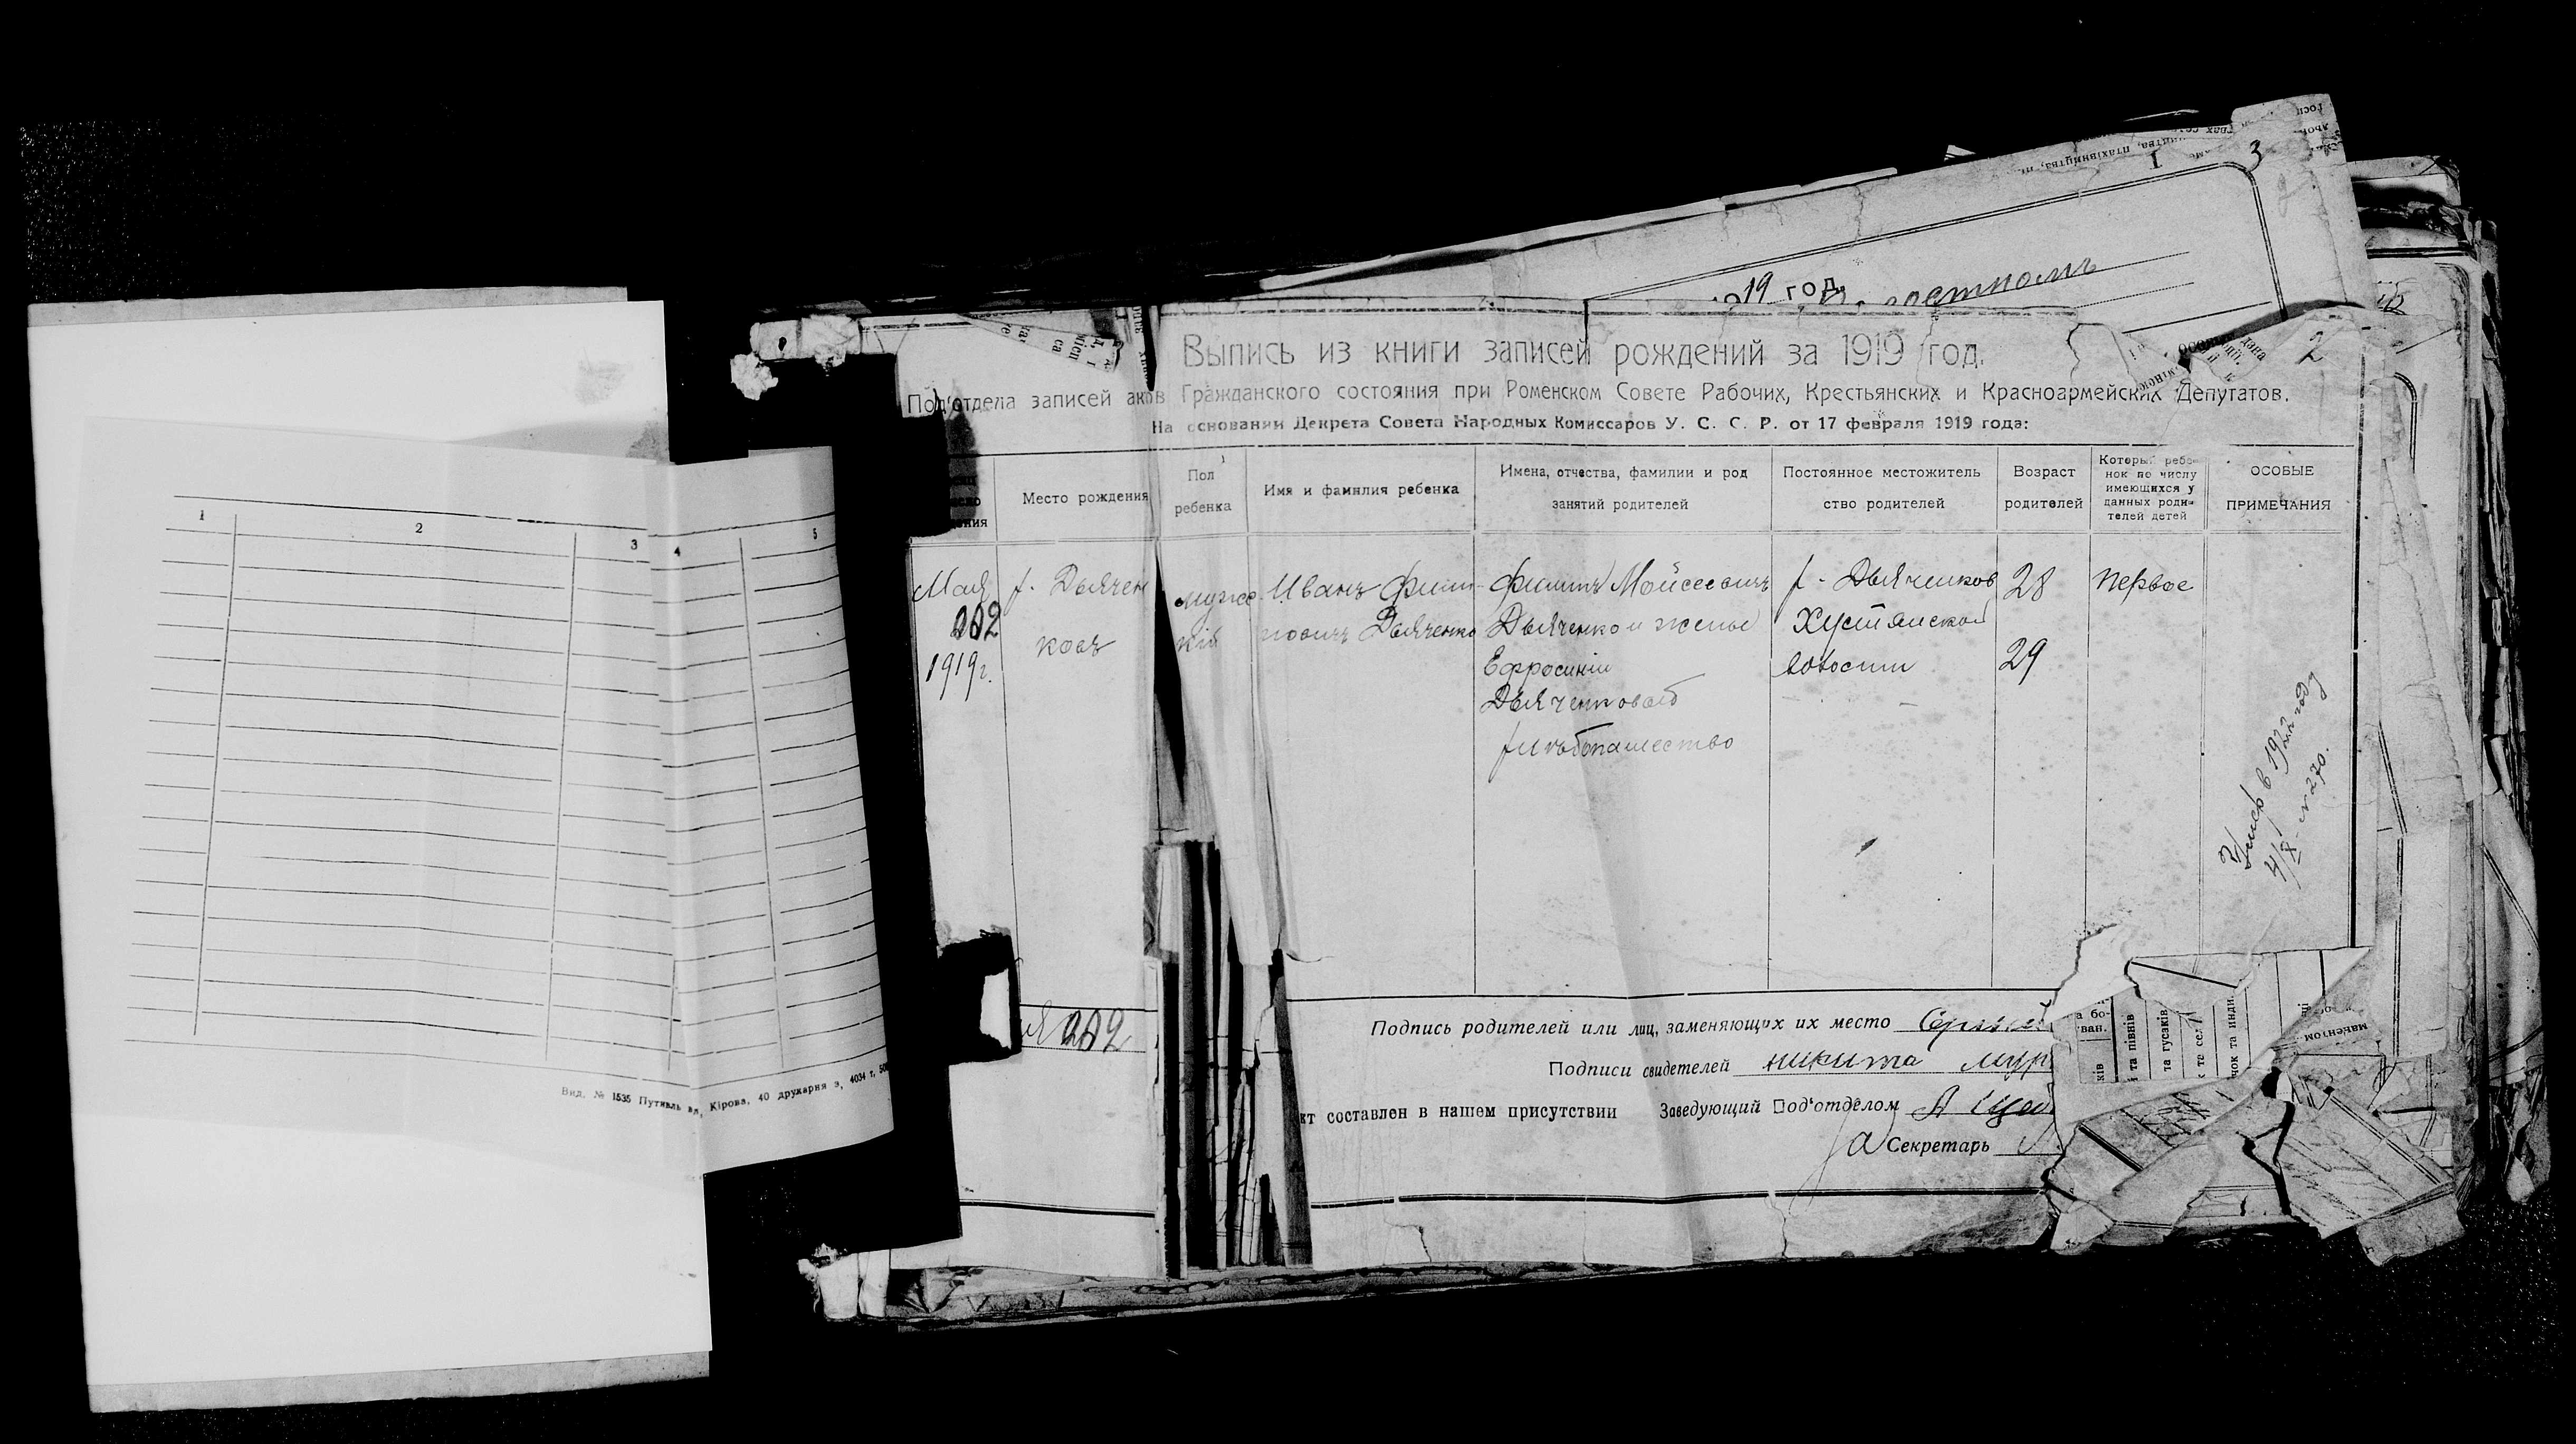 1 2 3 4 5
Вид. № 1535 Путивль вл. Кірова, 40 друкарня з. 4034 т. 50
3
19 год.
2
Выпись из книги записей рождений за 1919 год.
Под‘отдела записей аков Гражданского состояния при Роменском Совете Рабочих, Крестьянских и Красноармейских Депутатов.
На основании Декрета Совета Народных Комиссаров У. С. С. Р. от 17 февраля 1919 года:
Место рождения
Пол
ребенка
Имя и фамилия ребенка
Имена, отчества, фамилии и род
занятий родителей
Постоянное местожитель
ство родителей
Возраст
родителей
Который ребе-
нок по числу
имеющихся у
данных роди-
телей детей
ОСОБЫЕ
ПРИМЕЧАНИЯ
Мая
1919 г.
х. Дьячен
ковъ
мужс
кій
Иванъ Фили-
повичъ Дьяченко
Филипъ Мойсеевичъ
Дьяченко и жены
Ефросиніи
Дьяченковой
хлѣбопашество
х. Дьяченков
Хустянской
волости
28
29
первое
в 1922 году
4/X № 270.
Подпись родителей или лиц, заменяющих их место
Подписи свидетелей никита
кт составлен в нашем присутствии Заведующий Под‘отделом
Секретарь